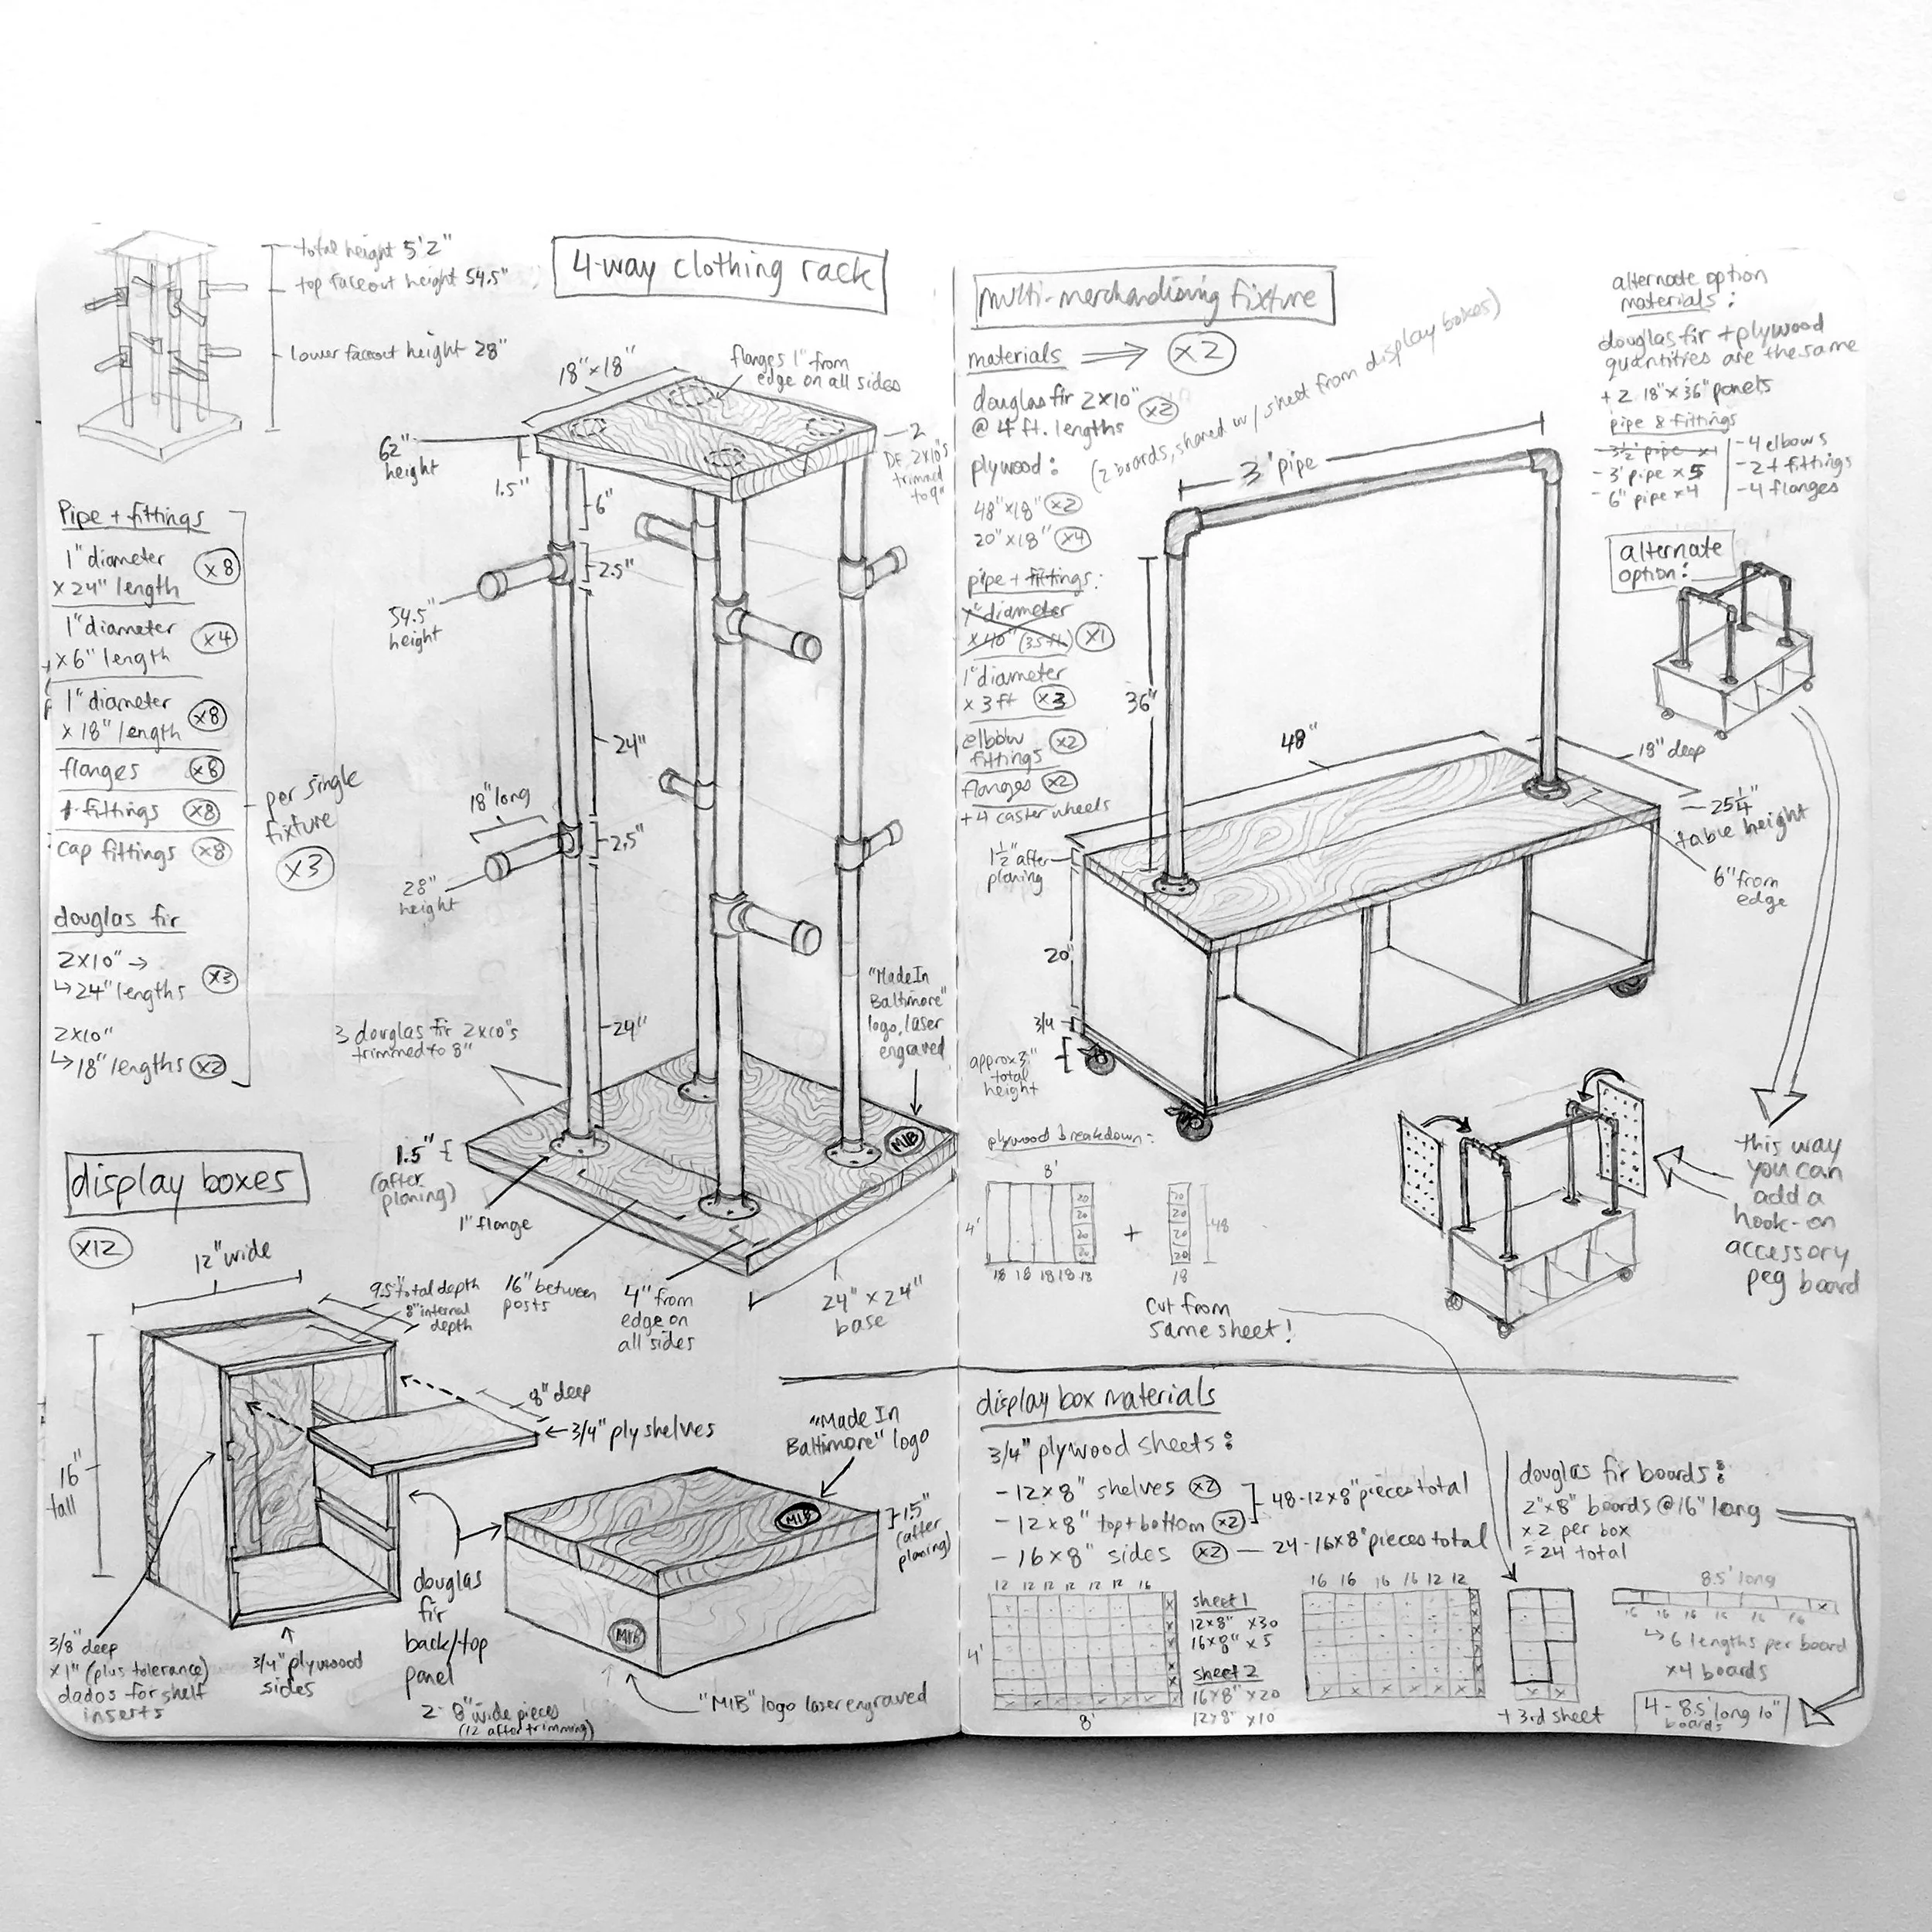 total height 5'2"
top faceout height 54.5"
lower faceout height 28"
4-way clothing rack
18"x18"
flanges 1" from
edge on all sides
62"
height
1.5"
6"
2
DF 2x10's
trimmed
to 9"
2.5"
54.5"
height
24"
18" long
2.5"
28"
height
24"
Pipe + fittings
1" diameter
x 24" length
x8
1" diameter
x 6" length
x4
1" diameter
x 18" length
x8
flanges x8
t-fittings x8
cap fittings x8
douglas fir
2x10" →
↳ 24" lengths
x3
2x10"
↳ 18" lengths x2
per single
fixture
x3
3 douglas fir 2x10's
trimmed to 8"
"Made In
Baltimore"
logo, laser
engraved
MIB
1.5"
(after
planing)
1" flange
16" between
posts
4" from
edge on
all sides
24" x 24"
base
display boxes
x12
12" wide
9.5" total depth
8" internal
depth
16"
tall
8" deep
3/4" ply shelves
"Made In
Baltimore" logo
MIB
1.5"
(after
planing)
MIB
3/8" deep
x 1" (plus tolerance)
dados for shelf
inserts
3/4" plywood
sides
douglas
fir
back/top
panel
2- 8" wide pieces
(12 after trimming)
"MIB" logo laser engraved
multi-merchandising fixture
materials ⟹ x2
douglas fir 2x10"
@ 4 ft. lengths
x2
plywood:
(2 boards, shared w/ sheet from display boxes)
48"x18" x2
20"x18" x4
pipe + fittings:
1" diameter
x 40" (3.5 ft) x1
1" diameter
x 3 ft x3
elbow
fittings x2
flanges x2
+ 4 caster wheels
3' pipe
36"
48"
18" deep
25 1/4"
table height
6" from
edge
1 1/2" after
planing
20"
3/4
approx 3"
total
height
alternate option
materials:
douglas fir + plywood
quantities are the same
+ 2 18" x 36" panels
pipe & fittings
- 3 1/2' pipe x1
- 3' pipe x5
- 6" pipe x4
- 4 elbows
- 2 t fittings
- 4 flanges
alternate
option:
this way
you can
add a
hook-on
accessory
peg board
plywood breakdown:
8'
4'
20
20
20
20
18 18 18 18 18
+
20
20
20
20
48
18
cut from
same sheet!
display box materials
3/4" plywood sheets:
- 12x8" shelves x2
- 12x8" top + bottom x2
48 - 12x8" pieces total
- 16x8" sides x2 — 24 - 16x8" pieces total
12 12 12 12 12 12 16
4'
8'
sheet 1
12x8" x30
16x8" x5
sheet 2
16x8" x20
12x8" x10
16 16 16 16 12 12
+ 3rd sheet
douglas fir boards:
2"x8" boards @ 16" long
x2 per box
= 24 total
8.5' long
16 16 16 16 16 16
↳ 6 lengths per board
x4 boards
4 - 8.5' long 10"
boards